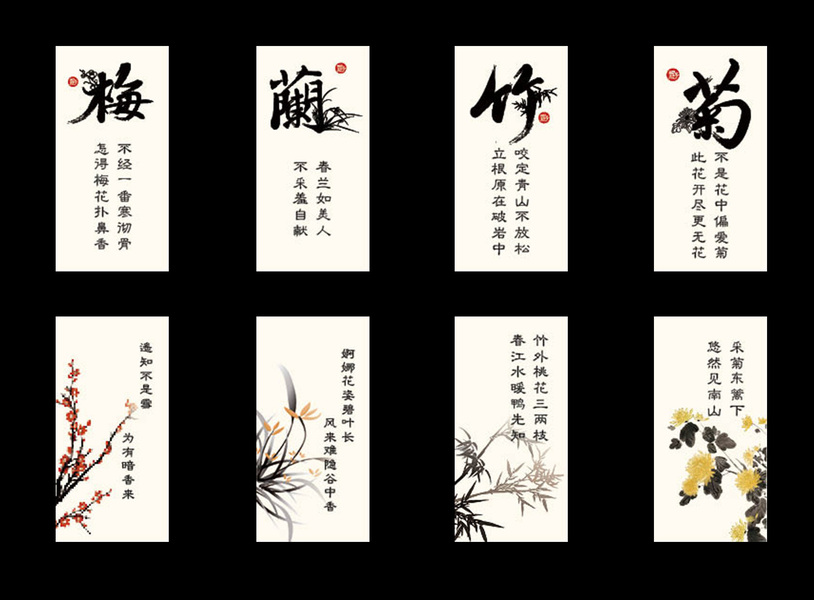 梅
不经一番寒彻骨
怎得梅花扑鼻香
蘭
春兰如美人
不采羞自献
竹
咬定青山不放松
立根原在破岩中
菊
不是花中偏爱菊
此花开尽更无花
遥知不是雪
为有暗香来
婀娜花姿碧叶长
风来难隐谷中香
竹外桃花三两枝
春江水暖鸭先知
采菊东篱下
悠然见南山